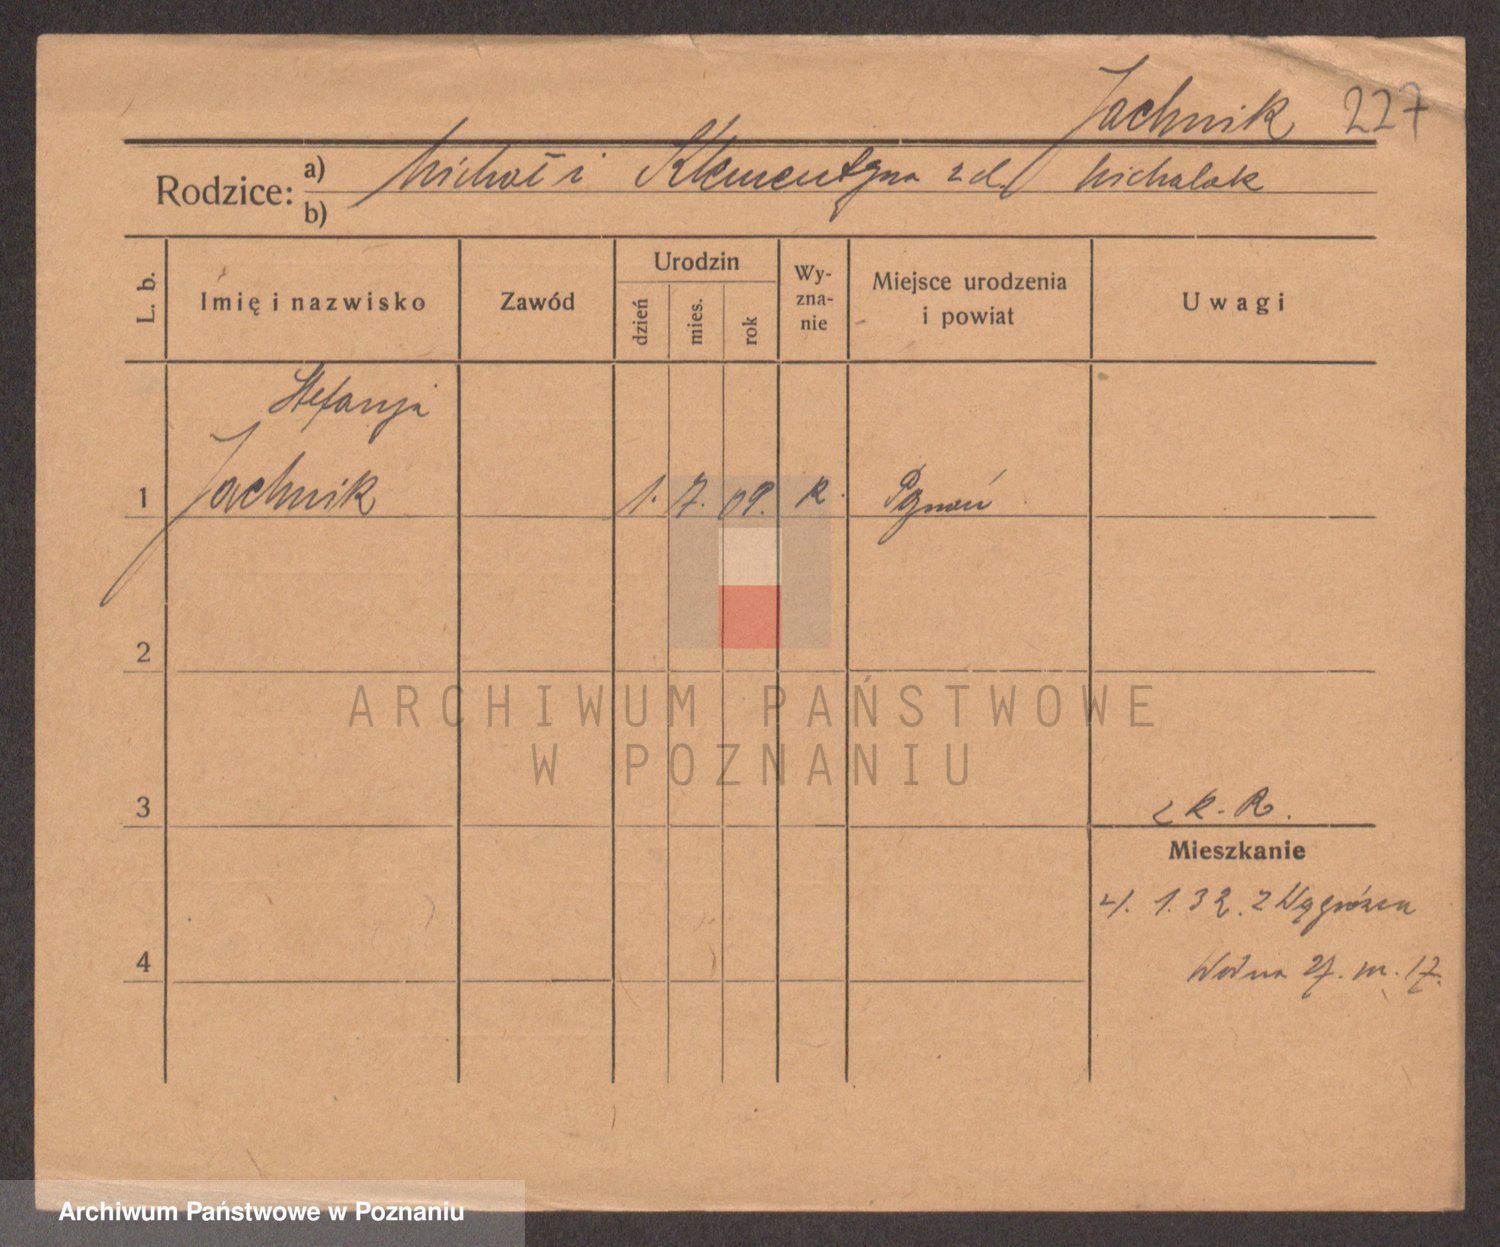 Jachnik 227
Rodzice: a) Michał i Klementyna z d. Michalak
b)
L. b. Imię i nazwisko Zawód Urodzin dzień mies. rok Wyzna-nie Miejsce urodzenia i powiat Uwagi
Stefanja
1 Jachnik 1. 7. 09. k. Poznań
2
ARCHIWUM PAŃSTWOWE
W POZNANIU
3
Mieszkanie
1.32. z
4
Wodna 27. m. 17.
Archiwum Państwowe w Poznaniu